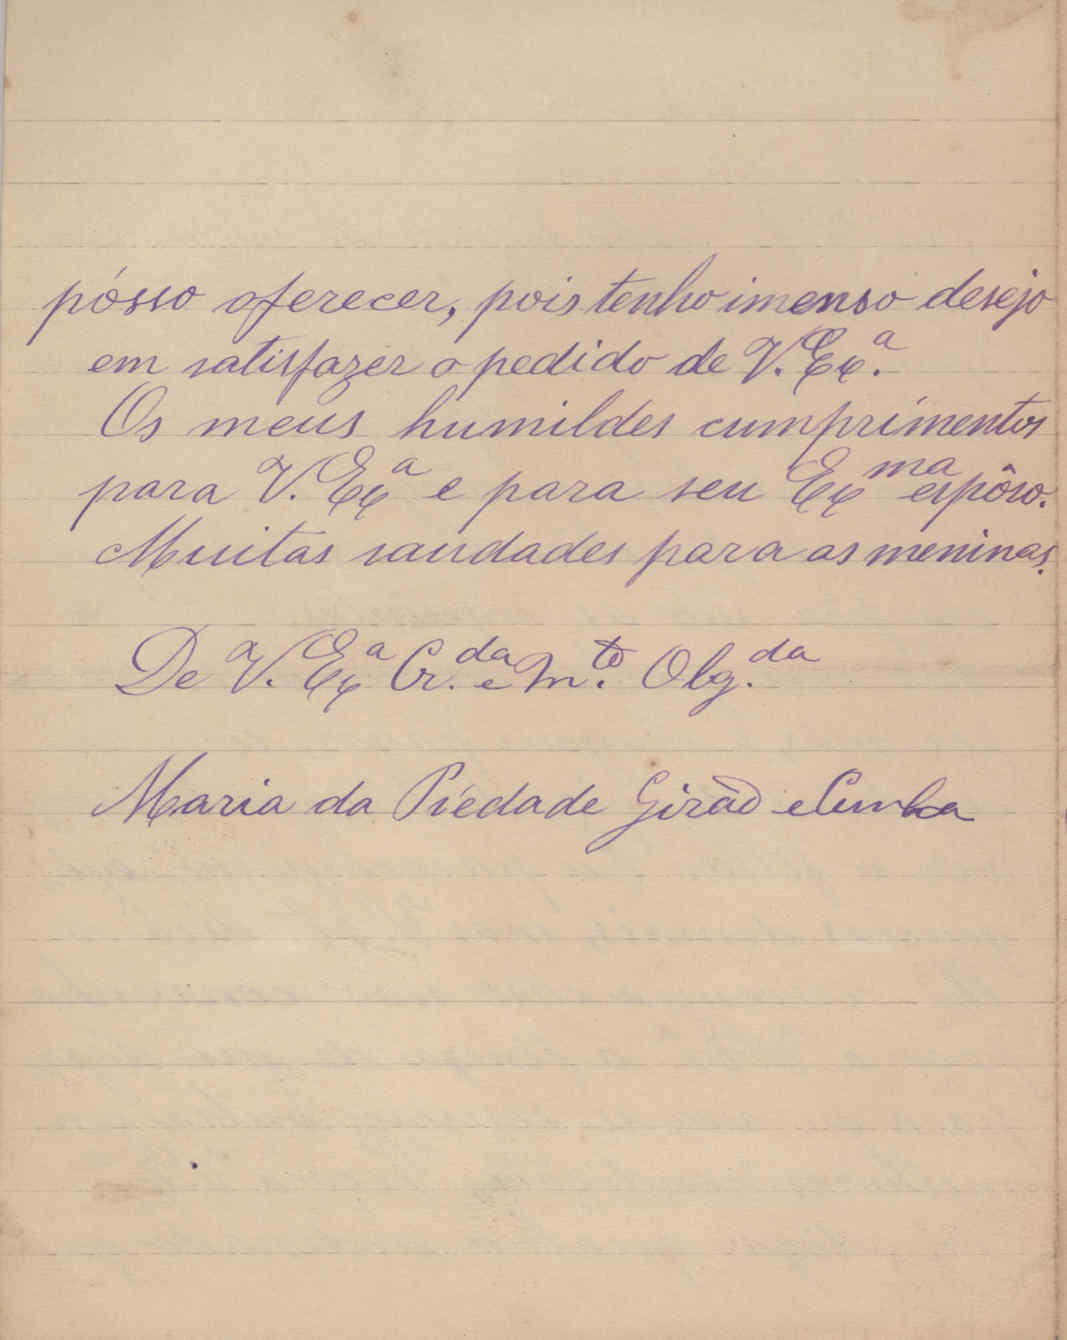 pósso oferecer, pois tenho imenso desejo
em satisfazer o pedido de V. Exª.
Os meus humildes cumprimentos
para V. Exª e para seu Exᵐᵃ espôso.
Muitas saudades para as meninas.
De V. Exª Cr.ᵈᵃ e M.ᵗᵒ Obg.ᵈᵃ
Maria da Piedade Girão e Cunha